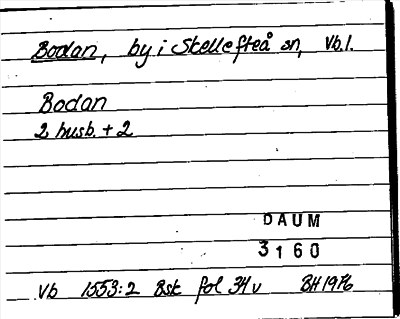 Bodan, by i Skellefteå sn, Vb.l.
Bodan
2 husb. + 2
DAUM
3160
Vb 1553:2 Bsk fol 34v BH 1976